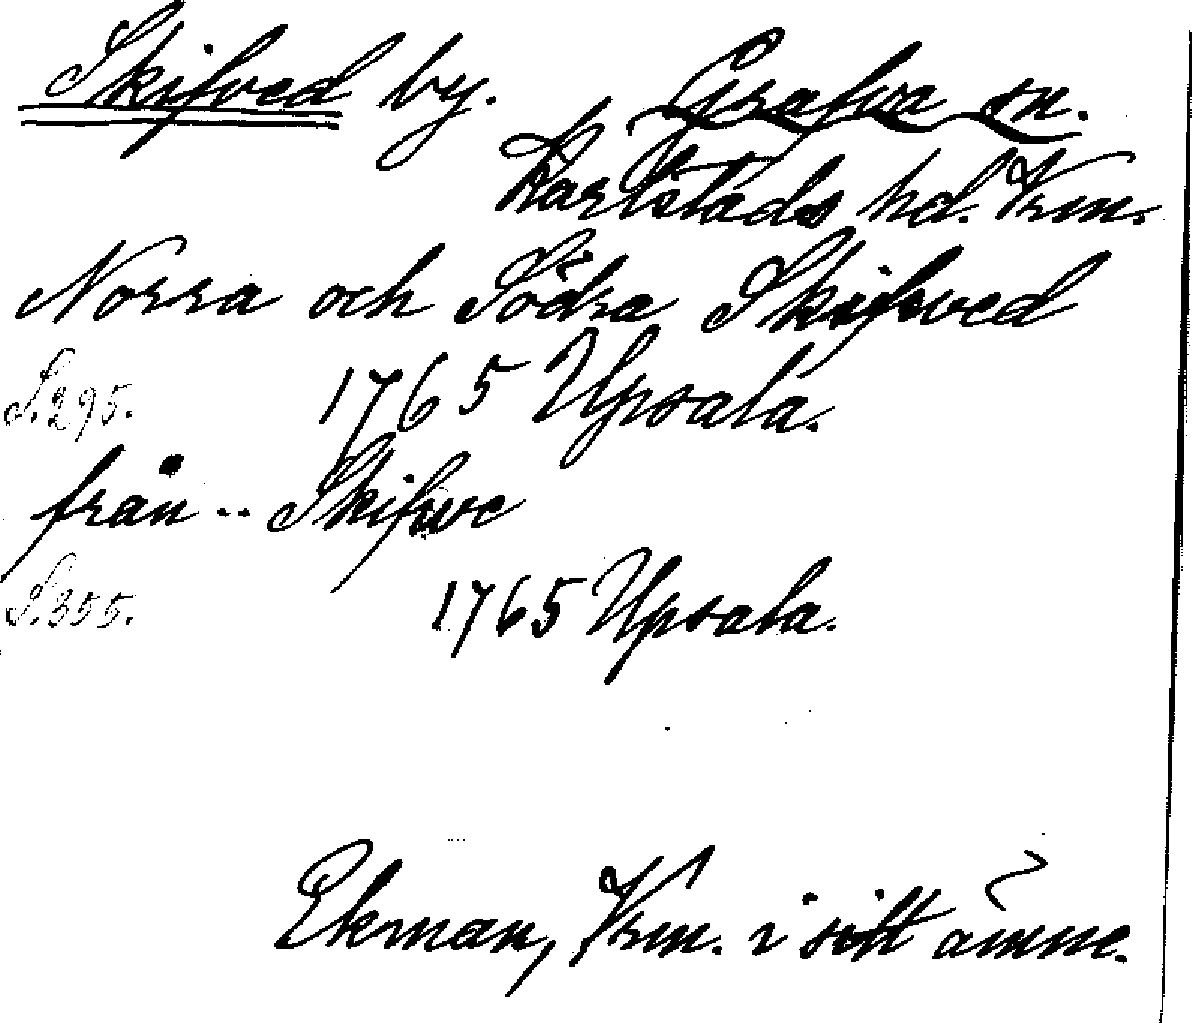 Skifved by. Grafva sn.
Karlstads hd. Vrm.
Norra och Södra Skifwed
S.295. 1765 Upsala.
från .. Skifwe
S.355. 1765 Upsala.
Ekman, Vrm. i sitt ämne.